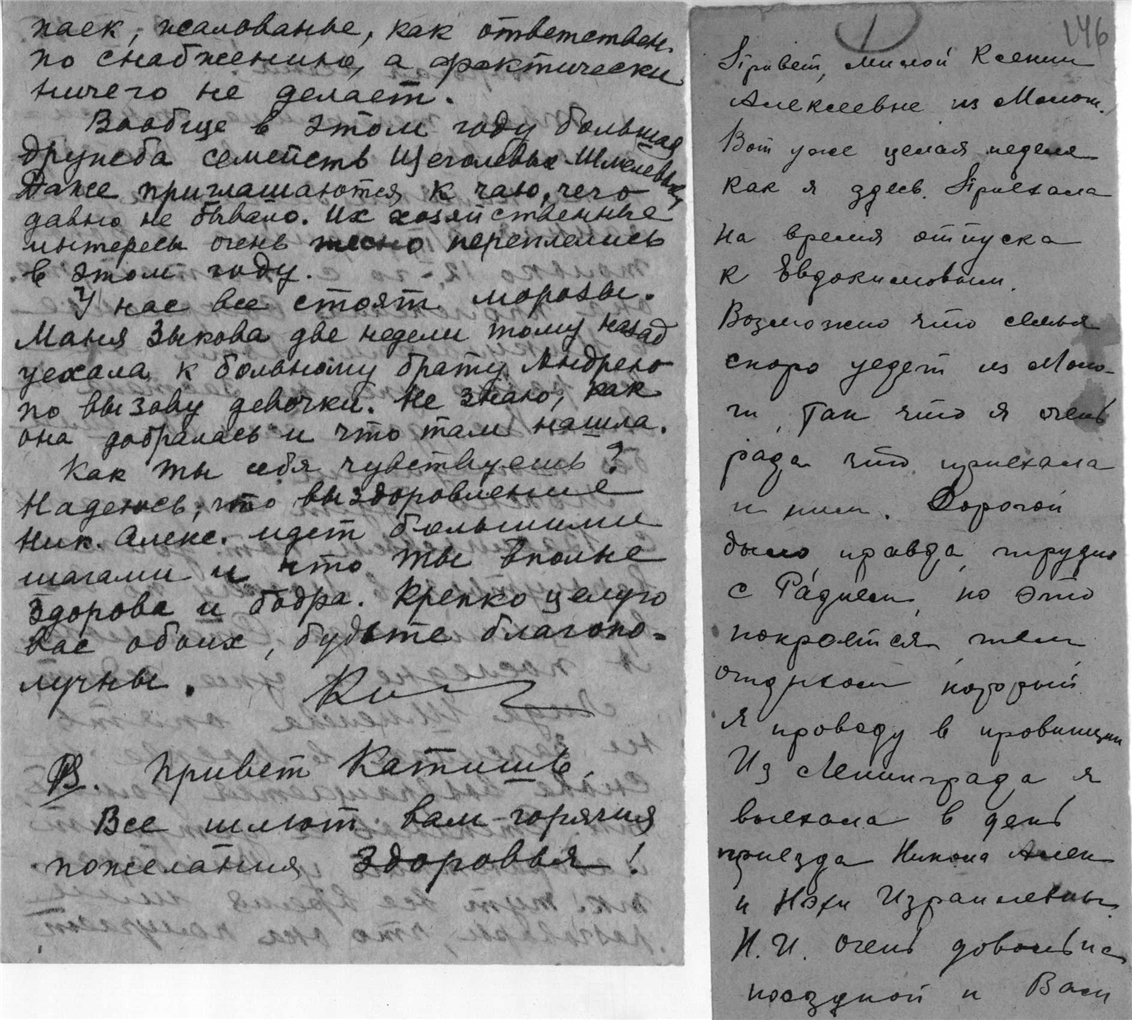 паек, жалованье, как ответствен.
по снабжению, а фактически
ничего не делает.
Вообще в этом году большая
дружба семейств Щеголевых Шмелевых,
Даже приглашаются к чаю, чего
давно не бывало. Их хозяйственные
интересы очень тесно переплелись
в этом году.
У нас все стоят морозы.
Маня Зыкова две недели тому назад
уехала к больному брату Андрею
по вызову девочки. Не знаю, как
она добралась и что там нашла.
Как ты себя чувствуешь?
Надеюсь, что выздоровление
Ник. Алекс. идет большими
шагами и что ты вполне
здорова и бодра. Крепко целую
вас обоих, будьте благопо-
лучны.
Привет Катишь.
Все шлют вам горячия
пожелания здоровья!
1
146
Привет, милой Ксении
Алексеевне из Молог.
Вот уже целая неделя
как я здесь. Приехала
на время отпуска
к Евдокимовым.
Возможно что семья
скоро уедет из Моло-
ги, так что я очень
рада что приехала
к ним. Дорогой
было, правда, трудно
с Радием, но это
покроется тем
отдыхом который
я проведу в провинции
Из Ленинграда я
выехала в день
приезда Никола Алек
и Нэхи Израилевны.
Н. И. очень довольна
поездкой к Вам